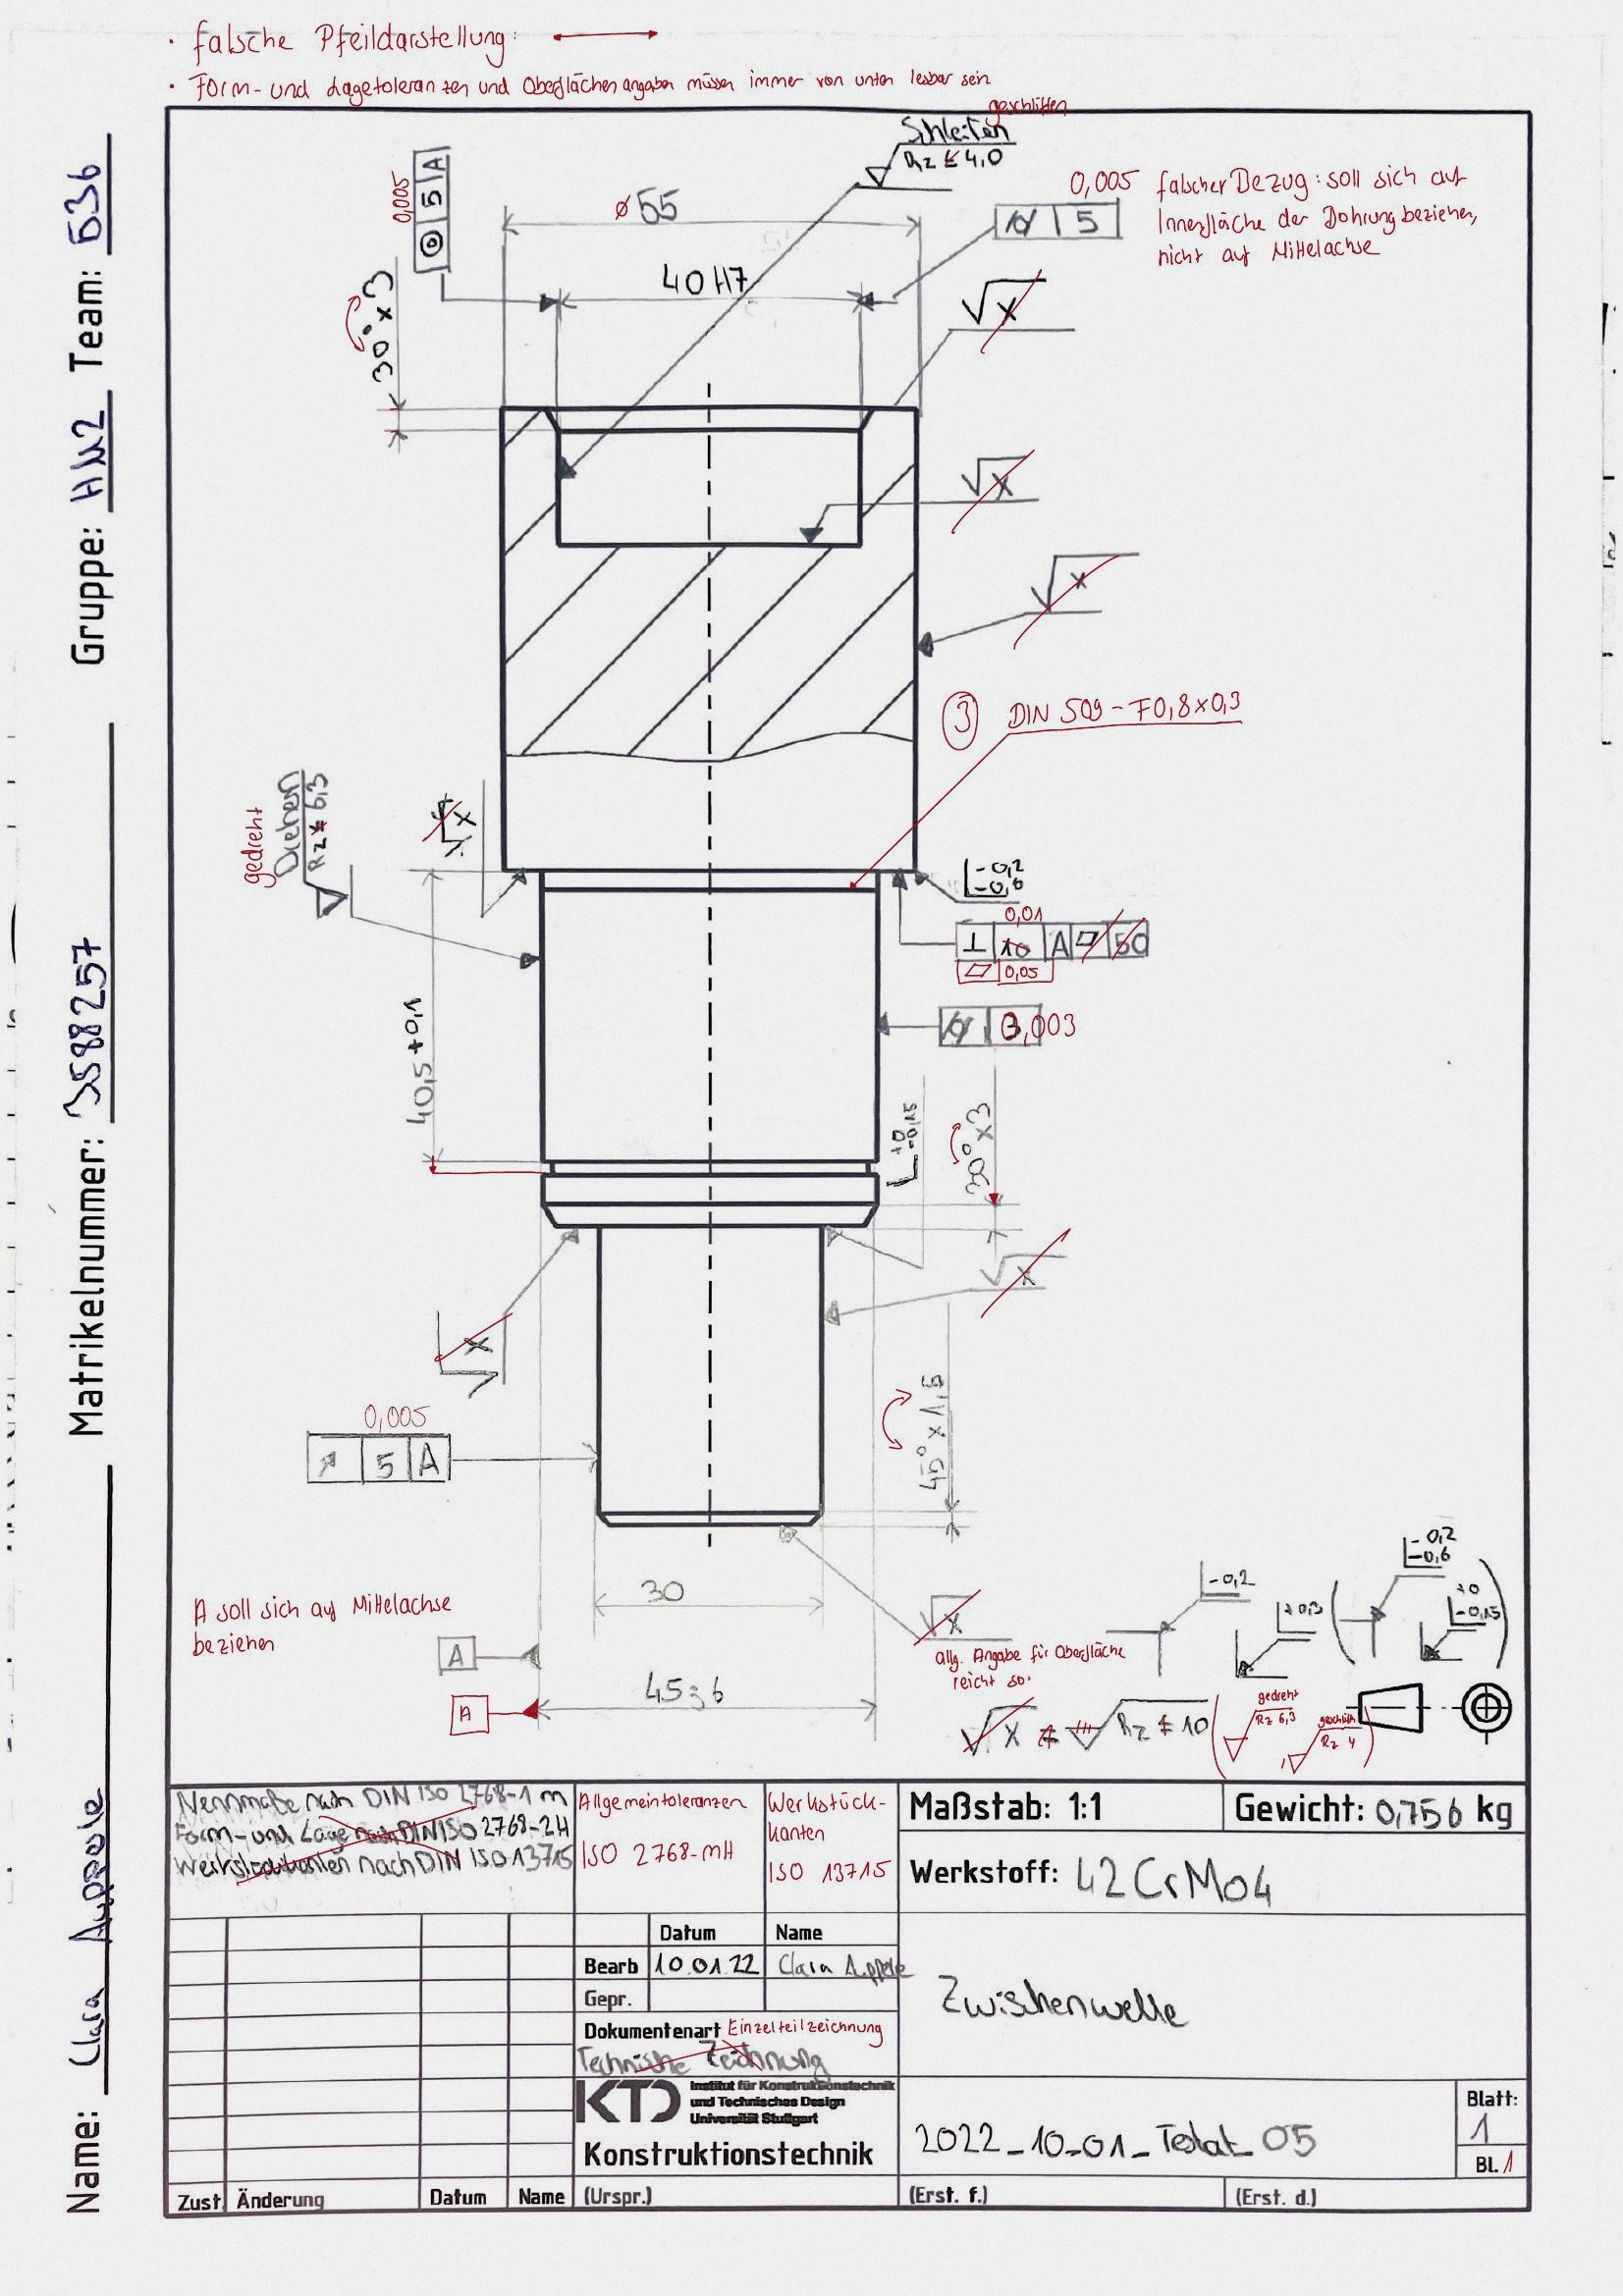 · falsche Pfeildarstellung:
· Form- und Lagetoleranzen und Oberflächenangaben müssen immer von unten lesbar sein
geschliffen
Schleifen
Rz ≤ 4,0
0,005
◎ 5 A
⌀55
0,005
⌭ 5
falscher Bezug: soll sich auf
Innenfläche der Bohrung beziehen,
nicht auf Mittelachse
40 H7
30° x 3
√x
√x
√x
③ DIN 509 - F0,8x0,3
gedreht
Drehen
Rz ≤ 6,3
√x
-0,2
-0,6
0,01
⊥ 10 A ⏥ 50
⏥ 0,05
⌭ 0,003
40,5 +0,1
+0
-0,15
30° x3
√x
√x
0,005
↗ 5 A
45° x 1,5
30
A soll sich auf Mittelachse
beziehen
A
A
45
√x
allg. Angabe für Oberfläche
reicht so.
-0,2
+0,3
-0,2
-0,6
+0
-0,15
√x = √Rz ≤ 10
gedreht
Rz 6,3
geschliffen
Rz 4
Nennmaße nach DIN ISO 2768-1 m
Form- und Lage nach DIN ISO 2768-2H
Werkstückkanten nach DIN ISO 13715
Allgemeintoleranzen
ISO 2768-mH
Werkstück-
kanten
ISO 13715
Maßstab: 1:1
Gewicht: 0,756 kg
Werkstoff: 42CrMo4
Datum Name
Bearb 10.01.22 Clara Auppole
Gepr.
Dokumentenart Einzelteilzeichnung
Technische Zeichnung
Zwischenwelle
KTD Institut für Konstruktionstechnik
und Technisches Design
Universität Stuttgart
Konstruktionstechnik
2022_10_01_Testat_05
Blatt:
1
Bl. 1
Zust. Änderung Datum Name (Urspr.) (Erst. f.) (Erst. d.)
Name: Clara Auppole Matrikelnummer: 3588257 Gruppe: HM2 Team: 536